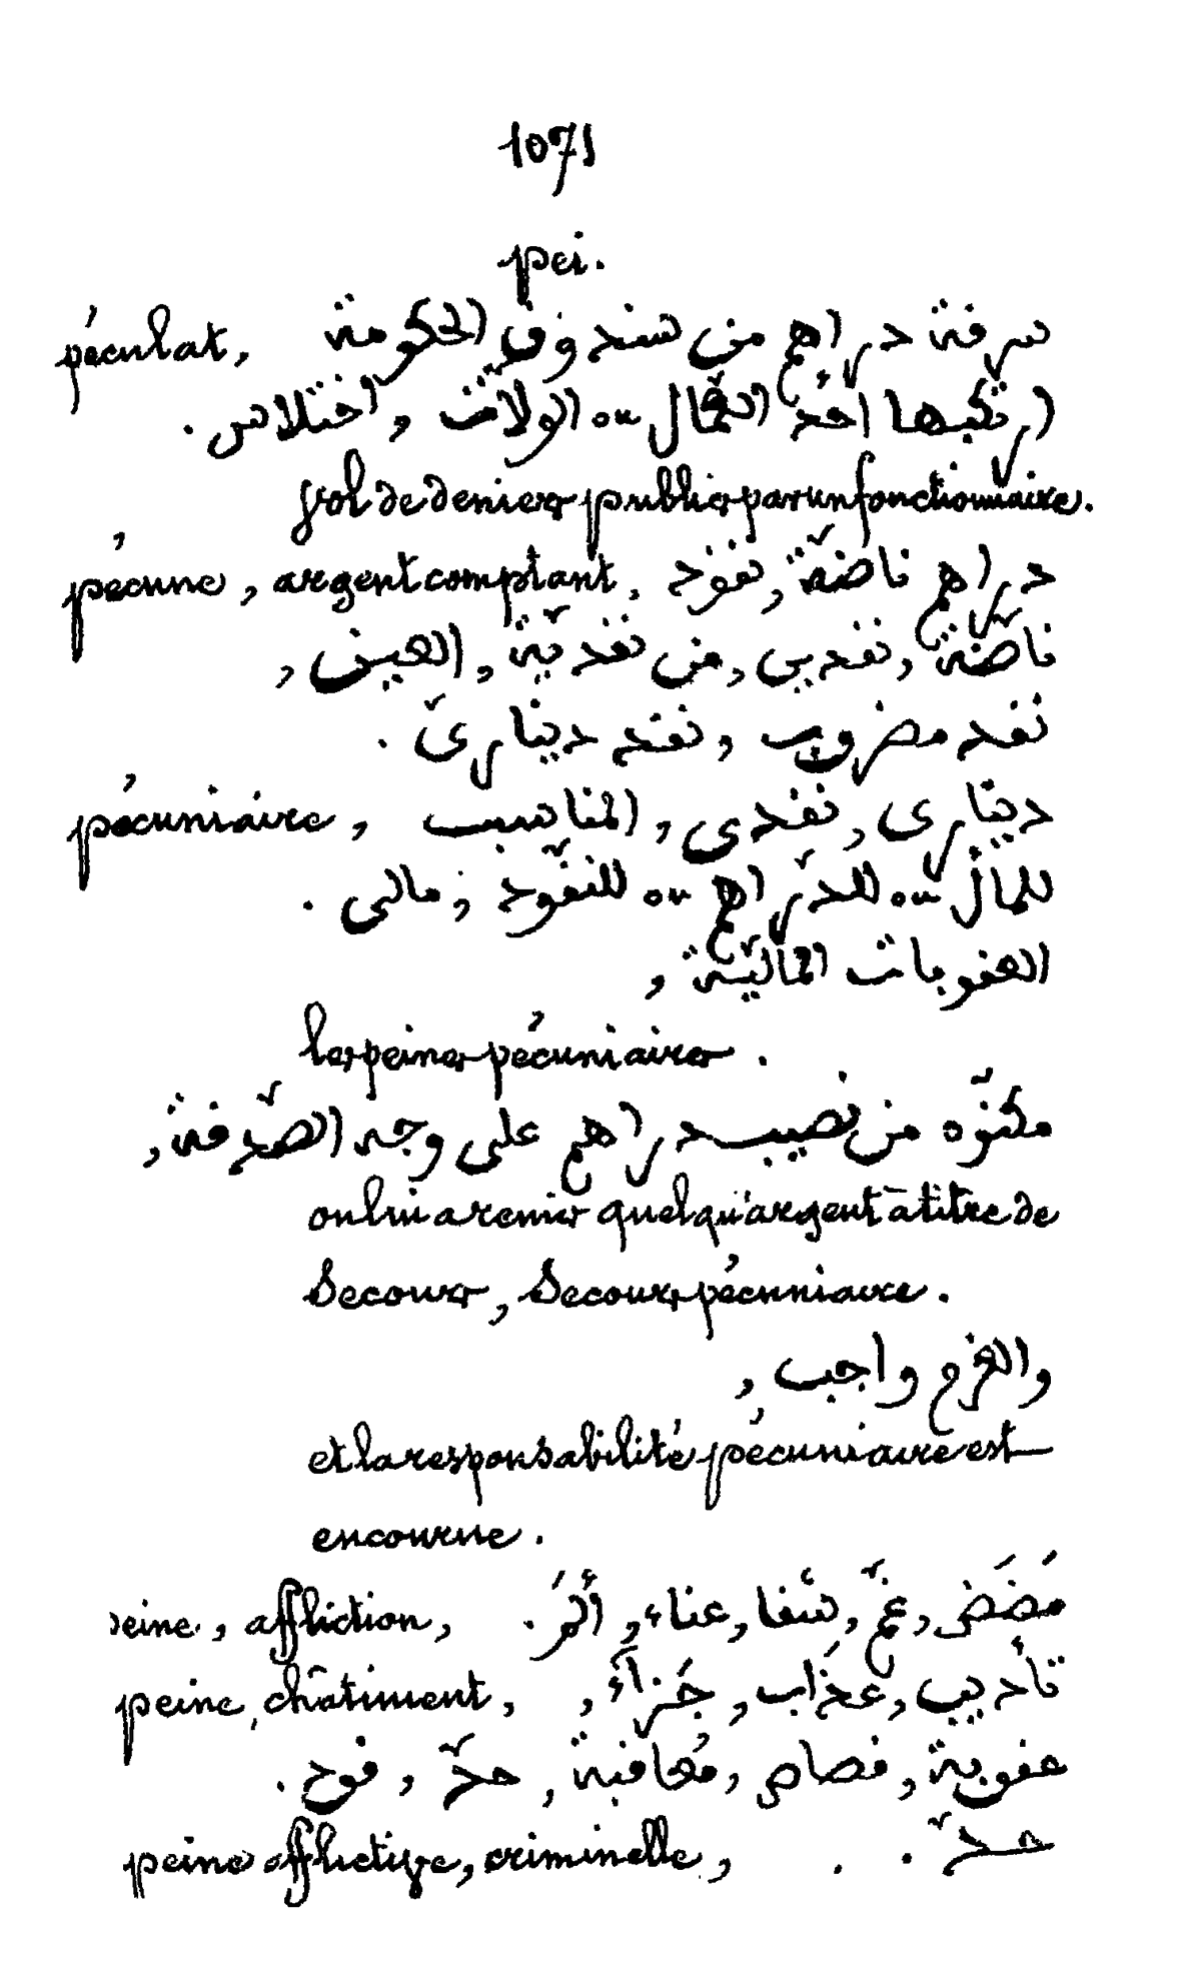 1071
pei.
péculat, سرقة دراهم من صندوق الحكومة
ارتكبها أحد العمّال ou الولاة, اختلاس.
vol de deniers publics par un fonctionnaire.
pécune, argent comptant, دراهم ناضّة, نقود
ناضّة, نقدى, من نقديّة, العين,
نقد مضروب, نقد دينارىّ.
pécuniaire, دينارى, نقدى, المناسب
للمال ou للدّراهم ou للنقود, مالى.
العقوبات الماليّة,
les peines pécuniaires.
مكنّوه من نصيب دراهم على وجه الصّدقة,
on lui a remis quelqu'argent à titre de
secours, secours pécuniaire.
والغرم واجب,
et la responsabilité pécuniaire est
encourue.
peine, affliction, مَضَض, غمّ, شقا, عناء, ألمَ.
peine, châtiment, تأديب, عذَاب, جَزاءَ,
عقوبة, قصاص, مُعاقبة, حدّ, قود.
peine afflictive, criminelle, حدّ.